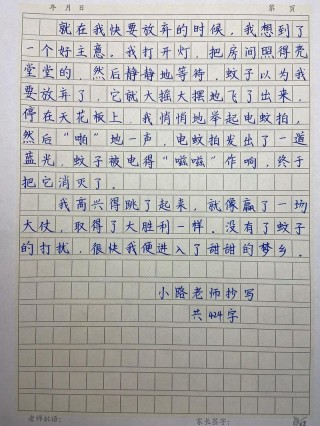 年 月 日 第 页
就在我快要放弃的时候，我想到了
一个好主意。我打开灯，把房间照得亮
堂堂的，然后静静地等待，蚊子以为我
要放弃了，它就大摇大摆地飞了出来，
停在天花板上，我悄悄地举起电蚊拍，
然后“啪”地一声，电蚊拍发出了一道
蓝光，蚊子被电得“嗞嗞”作响，终于
把它消灭了。
我高兴得跳了起来，就像赢了一场
大仗，取得了大胜利一样。没有了蚊子
的打扰，很快我便进入了甜甜的梦乡。
小路老师抄写
共424字
老师批语： 家长签字：